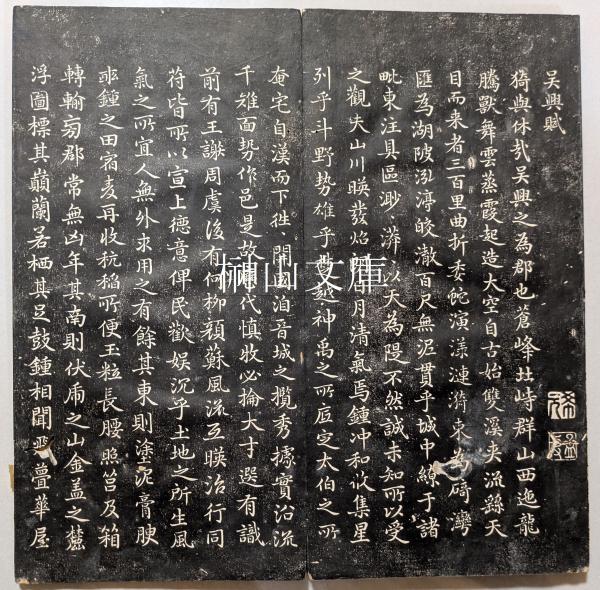 吳興賦
猗與休哉吳興之為郡也蒼峰北峙群山西迤龍
騰獸舞雲蒸霞起造太空自古始雙溪夾流繇天
目而来者三百里曲折委蛇演漾漣漪束為碕灣
匯為湖陂泓渟皎澈百尺無泥貫乎城中繚于諸
毗東注具區渺渺漭漭以天為隄不然誠未知所以受
之觀夫山川暎發焰 日月清氣焉鍾冲和攸集星
列乎斗野势雄乎 越神禹之所底定太伯之所
奄宅自漢而下往往開國洎晉城之攬秀據實沿流
千雉面势作邑是故 代慎牧必掄大才選有識
前有王謝周虞後有何柳顔蘇風流互暎治行同
符皆所以宣上德意俾民歡娱沉乎土地之所生風
氣之所宜人無外求用之有餘其東則塗泥膏腴
畞鍾之田宿麦再收秔稻所便玉粒長腰照筥及箱
轉輸旁郡常無凶年其南則伏虎之山金盖之麓
浮圖標其巔蘭若栖其足鼓鍾相聞 疊華屋
榊山文庫